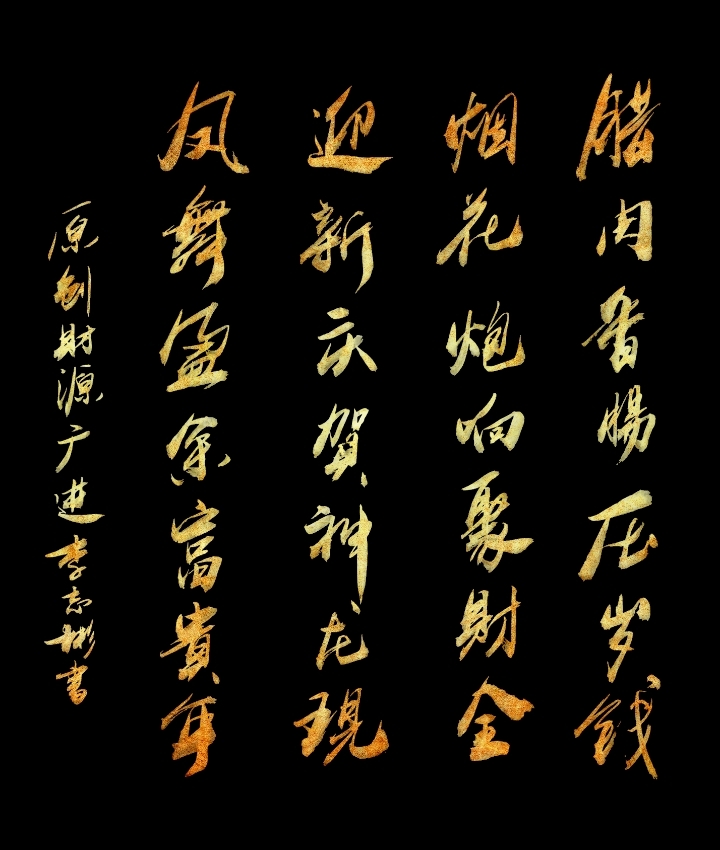 腊肉香腸压岁钱
烟花炮响聚财全
迎新庆賀神龙現
凤舞盈余富貴年
原创财源广进李志彬書